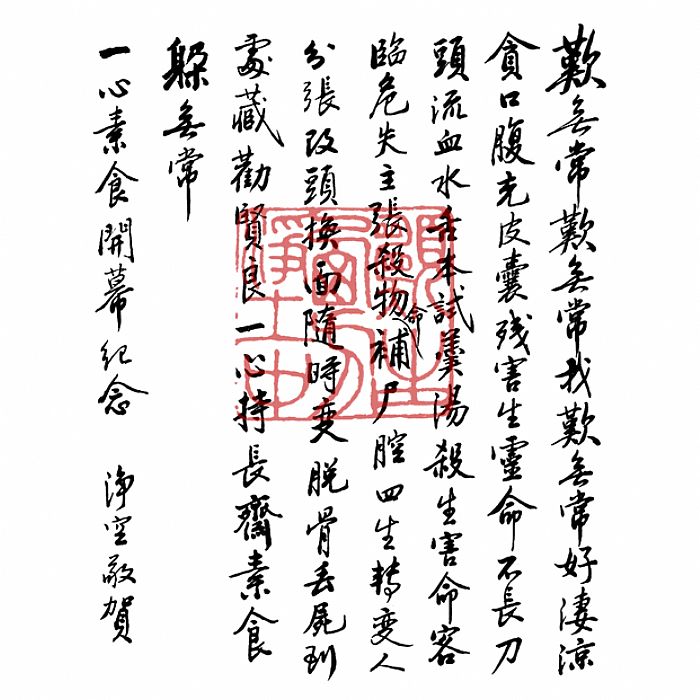 歎無常歎無常我歎無常好淒涼
貪口腹充皮囊残害生靈命不長刀
頭流血水舌本試羹湯殺生害命客
臨危失主張殺物命補尸腔四生轉變人
分張改頭換面隨時变脱骨丟屍到
處藏勸賢良一心持長齋素食
躲無常
一心素食開幕紀念 淨空敬賀
願生西方淨土中